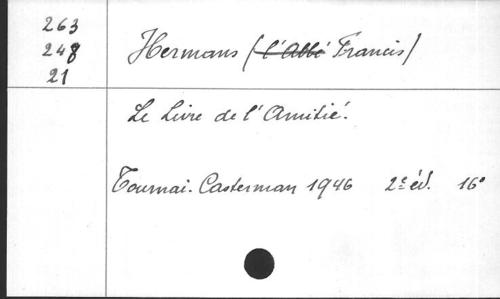 263
248
21
Hermans (l'Abbé Francis)
Le Livre de l'Amitié.
Tournai. Casterman 1946 2e éd. 16°